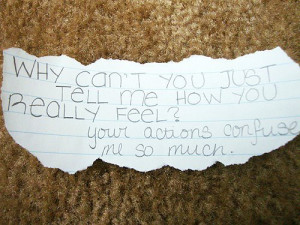 WHY CAN'T YOU JUST
TELL ME HOW YOU
REALLY FEEL?
your actions confuse
me so much.